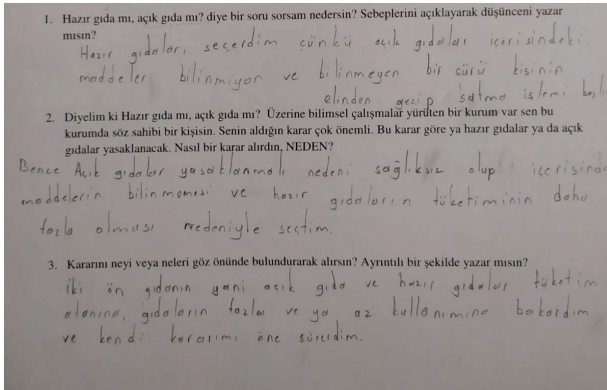 1. Hazır gıda mı, açık gıda mı? diye bir soru sorsam nedersin? Sebeplerini açıklayarak düşünceni yazar
mısın?
Hazır gıdaları, seçerdim çünkü açık gıdalar içerisindeki
maddeler bilinmiyor ve bilinmeyen bir sürü kişinin
elinden geçip satma işlemi
2. Diyelim ki Hazır gıda mı, açık gıda mı? Üzerine bilimsel çalışmalar yürüten bir kurum var sen bu
kurumda söz sahibi bir kişisin. Senin aldığın karar çok önemli. Bu karar göre ya hazır gıdalar ya da açık
gıdalar yasaklanacak. Nasıl bir karar alırdın, NEDEN?
Bence Açık gıdalar yasaklanmalı nedeni sağlıksız olup içerisinde
maddelerin bilinmemesi ve hazır gıdaların tüketiminin daha
fazla olması nedeniyle seçtim.
3. Kararını neyi veya neleri göz önünde bulundurarak alırsın? Ayrıntılı bir şekilde yazar mısın?
iki ön gıdanın yani açık gıda ve hazır gıdalar tüketim
alanına, gıdaların fazla ve ya az kullanımına bakardım
ve kendi kararımı öne sürerdim.